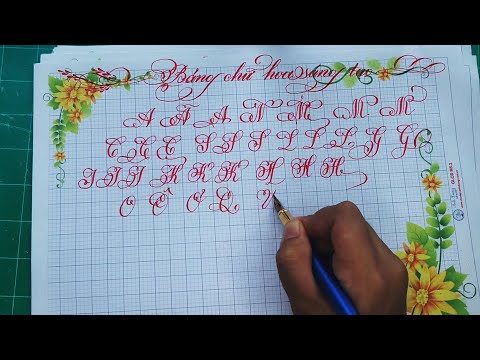 Bảng chữ hoa sáng tạo
A Ă A N M M M
C C E S S S L L L G G
I I I K K K H H H
O Ô Ơ Q